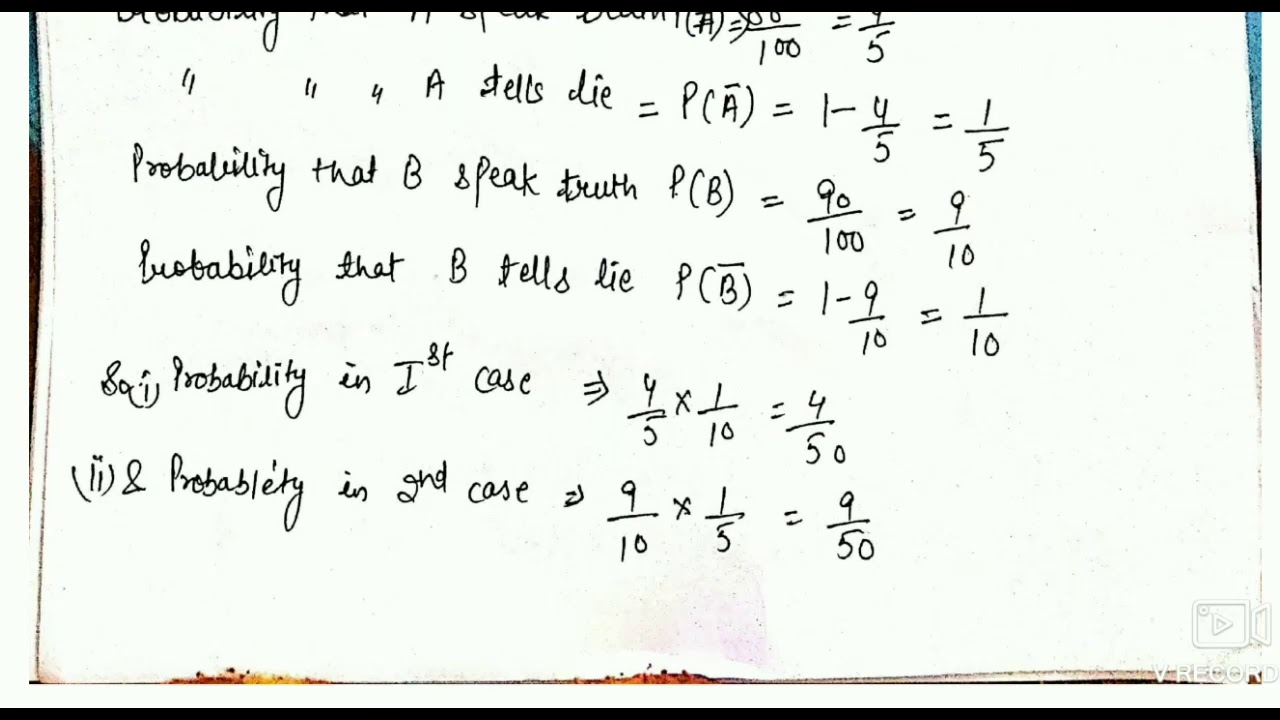 Probability that A speak truth P(A) ⇒ 80/100 = 4/5
" " " A tells lie = P(Ā) = 1 - 4/5 = 1/5
Probability that B speak truth P(B) = 90/100 = 9/10
Probability that B tells lie P(B̄) = 1 - 9/10 = 1/10
So,(i) Probability in Ist case ⇒ 4/5 × 1/10 = 4/50
(ii) & Probablety in 2nd case ⇒ 9/10 × 1/5 = 9/50
V RECORD